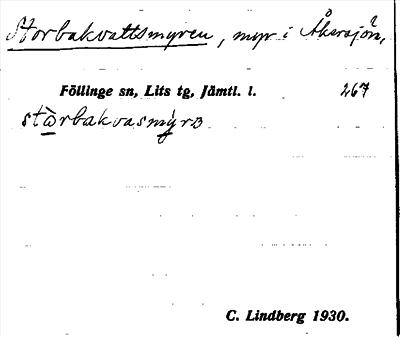 Storbakvattsmyren, myr i Åkersjön,
Föllinge sn, Lits tg, Jämtl. l. 267
stòrbakvasmýrɜ
C. Lindberg 1930.